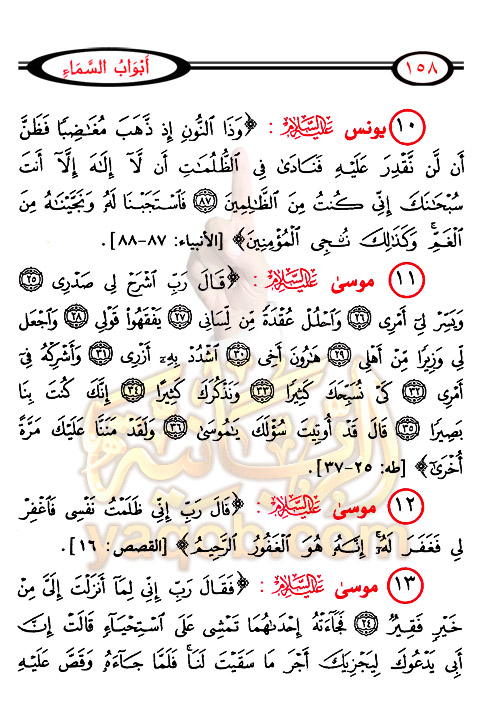 ١٥٨ أَبْوَابُ السَّمَاءِ
١٠ يونس عَلَيْهِ السَّلَامُ : ﴿وَذَا ٱلنُّونِ إِذ ذَّهَبَ مُغَٰضِبًا فَظَنَّ
أَن لَّن نَّقْدِرَ عَلَيْهِ فَنَادَىٰ فِى ٱلظُّلُمَٰتِ أَن لَّآ إِلَٰهَ إِلَّآ أَنتَ
سُبْحَٰنَكَ إِنِّى كُنتُ مِنَ ٱلظَّٰلِمِينَ ٨٧ فَٱسْتَجَبْنَا لَهُۥ وَنَجَّيْنَٰهُ مِنَ
ٱلْغَمِّ ۚ وَكَذَٰلِكَ نُۨجِى ٱلْمُؤْمِنِينَ﴾ [الأنبياء: ٨٧-٨٨].
١١ موسىٰ عَلَيْهِ السَّلَامُ : ﴿قَالَ رَبِّ ٱشْرَحْ لِى صَدْرِى ٢٥
وَيَسِّرْ لِىٓ أَمْرِى ٢٦ وَٱحْلُلْ عُقْدَةً مِّن لِّسَانِى ٢٧ يَفْقَهُوا۟ قَوْلِى ٢٨ وَٱجْعَل
لِّى وَزِيرًا مِّنْ أَهْلِى ٢٩ هَٰرُونَ أَخِى ٣٠ ٱشْدُدْ بِهِۦٓ أَزْرِى ٣١ وَأَشْرِكْهُ فِىٓ
أَمْرِى ٣٢ كَىْ نُسَبِّحَكَ كَثِيرًا ٣٣ وَنَذْكُرَكَ كَثِيرًا ٣٤ إِنَّكَ كُنتَ بِنَا
بَصِيرًا ٣٥ قَالَ قَدْ أُوتِيتَ سُؤْلَكَ يَٰمُوسَىٰ ٣٦ وَلَقَدْ مَنَنَّا عَلَيْكَ مَرَّةً
أُخْرَىٰٓ﴾ [طه: ٢٥-٣٧].
١٢ موسىٰ عَلَيْهِ السَّلَامُ : ﴿قَالَ رَبِّ إِنِّى ظَلَمْتُ نَفْسِى فَٱغْفِرْ
لِى فَغَفَرَ لَهُۥٓ ۚ إِنَّهُۥ هُوَ ٱلْغَفُورُ ٱلرَّحِيمُ﴾ [القصص: ١٦].
١٣ موسىٰ عَلَيْهِ السَّلَامُ : ﴿فَقَالَ رَبِّ إِنِّى لِمَآ أَنزَلْتَ إِلَىَّ مِنْ
خَيْرٍ فَقِيرٌ ٢٤ فَجَآءَتْهُ إِحْدَىٰهُمَا تَمْشِى عَلَى ٱسْتِحْيَآءٍ قَالَتْ إِنَّ
أَبِى يَدْعُوكَ لِيَجْزِيَكَ أَجْرَ مَا سَقَيْتَ لَنَا ۚ فَلَمَّا جَآءَهُۥ وَقَصَّ عَلَيْهِ
الربانية
yaqob.com